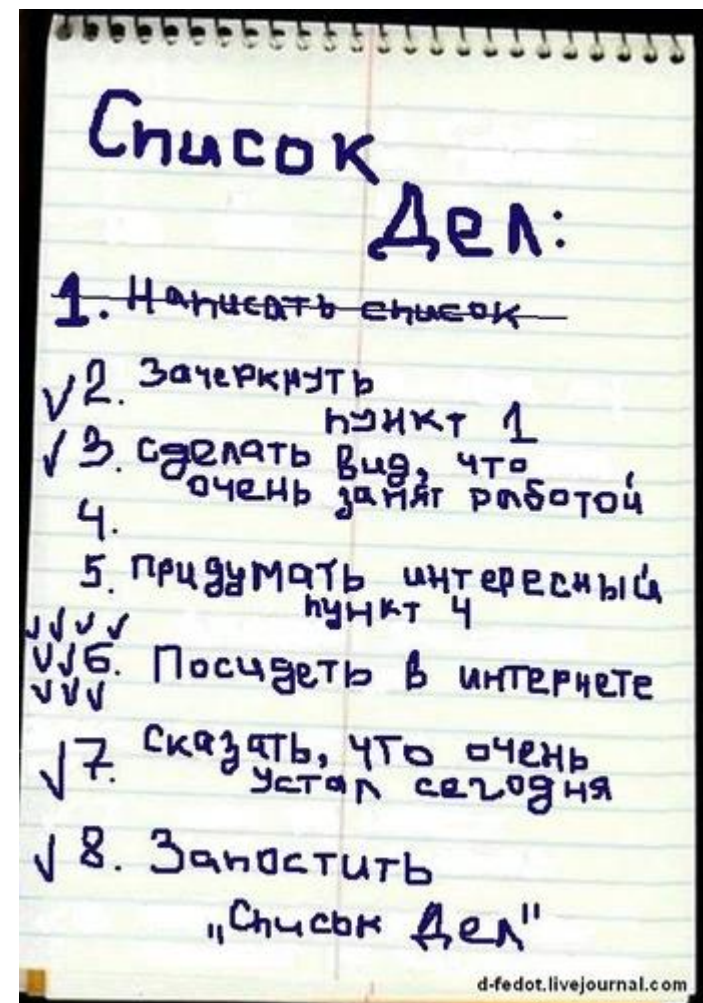 Список
Дел:
1. Написать список
√2. Зачеркнуть
пункт 1
√3. Сделать вид, что
очень занят работой
4.
5. Придумать интересный
пункт 4
√√√√
√√6. Посидеть в интернете
√√√
√7. Сказать, что очень
устал сегодня
√8. Запостить
„Список Дел"
d-fedot.livejournal.com